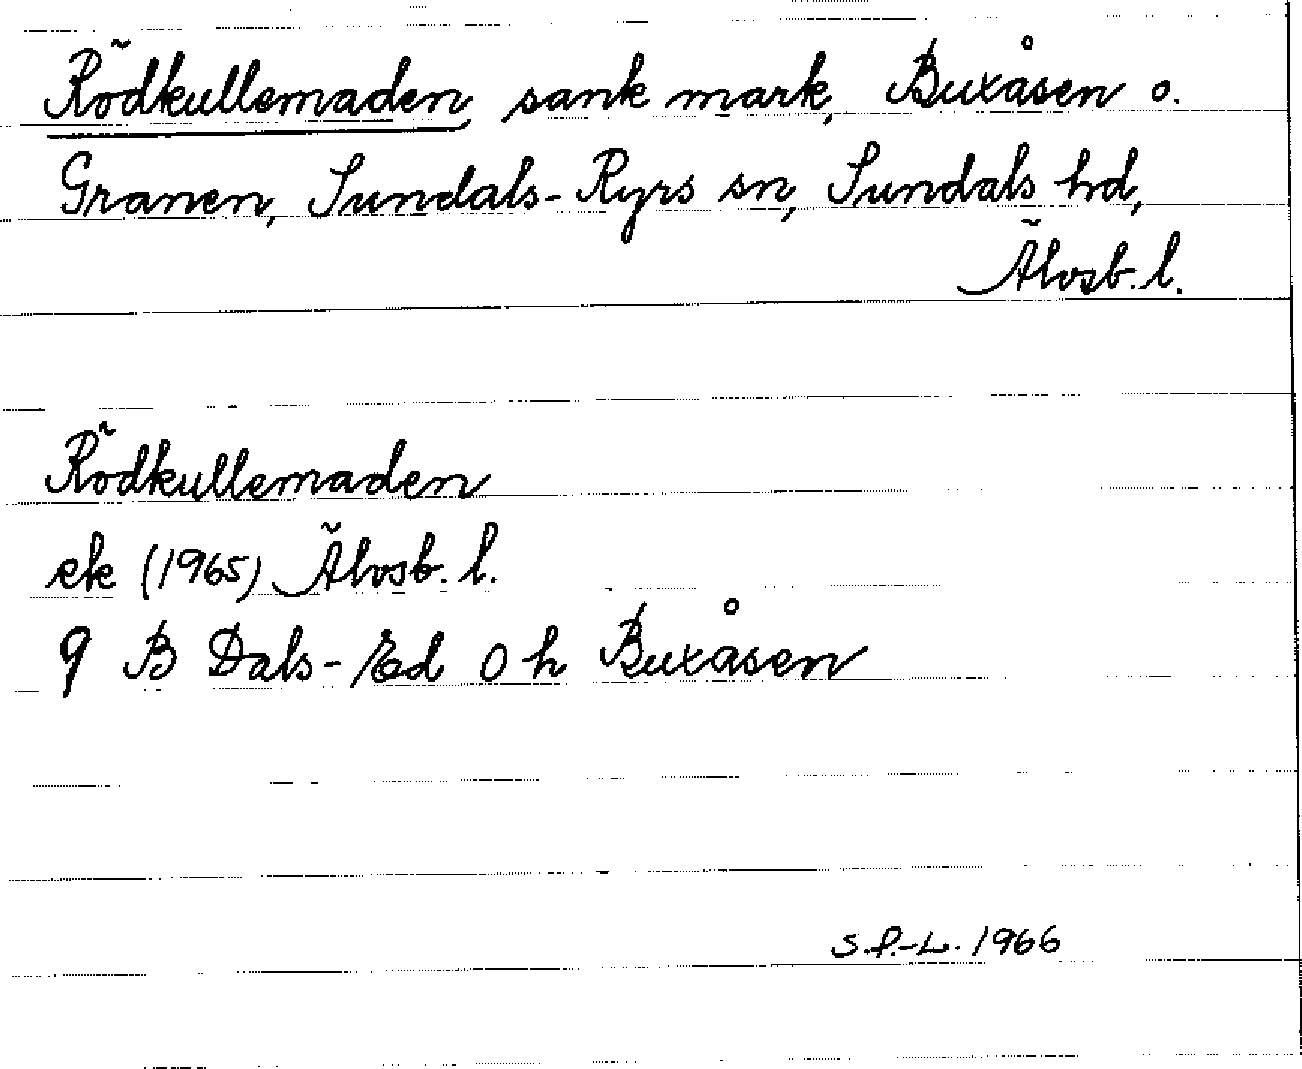 Rödkullemaden, sank mark, Buxåsen o.
Granen, Sundals-Ryrs sn, Sundals hd,
Älvsb. l.
Rödkullemaden
ek (1965) Älvsb. l.
9 B Dals-Ed 0 h Buxåsen
S.F.-L. 1966